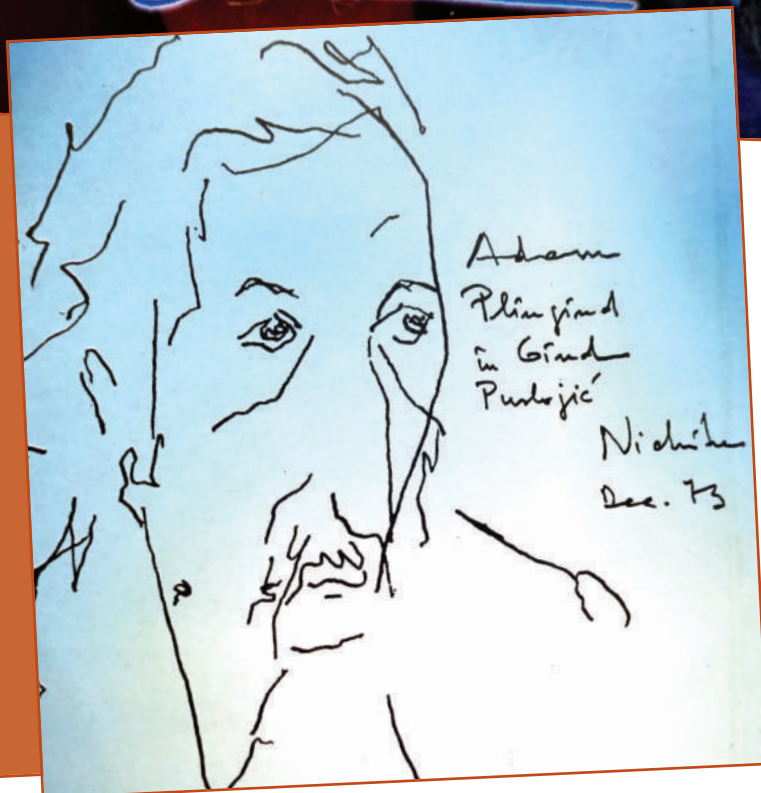 Adam
Plîngînd
în Gînd
Puslojić
Nichita
Dec. 73